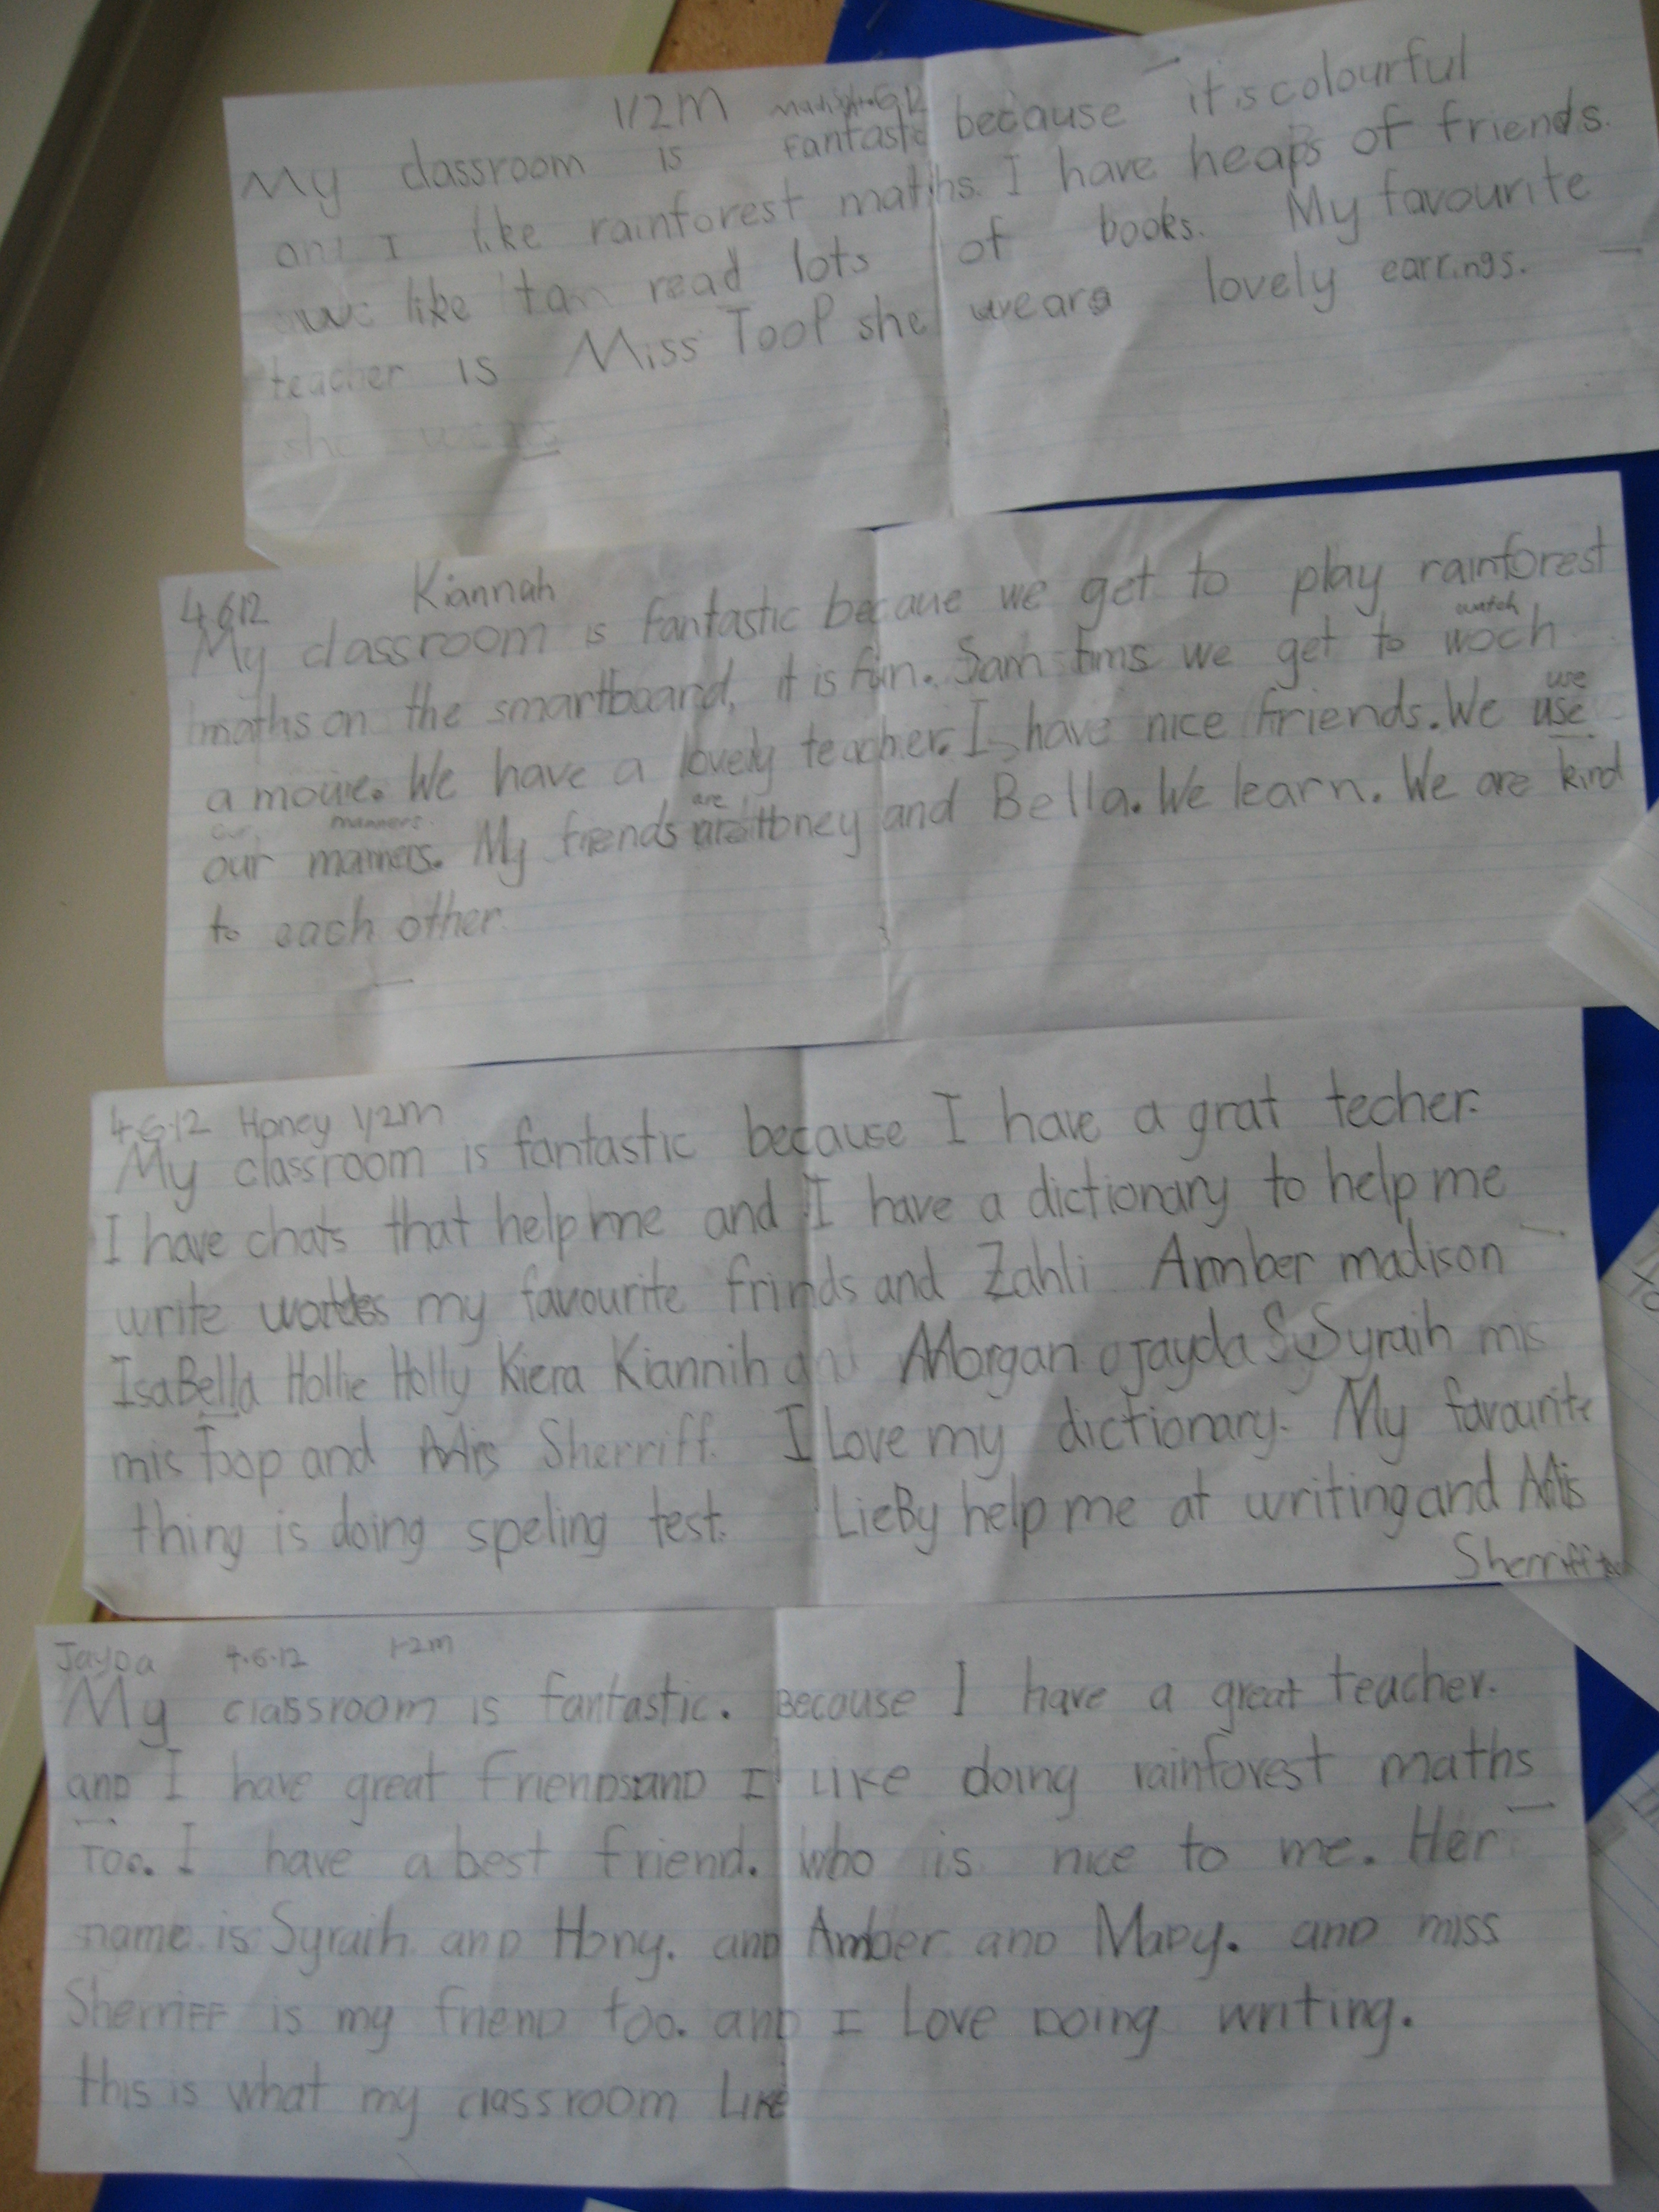 1/2M
My classroom is fantastic because it is colourful
and I like rainforest maths. I have heaps of friends.
like read lots of books. My favourite
teacher is Miss Toop she wears lovely earrings.
she wears
4.6.12 Kiannah
My classroom is fantastic becaue we get to play rainforest
watch
maths on the smartboard, it is fun. Sam tims we get to woch
use
a movie. We have a lovely teacher. I have nice friends. We use
our manners. are
our manners. My friends and Bella. We learn. We are kind
to each other.
4.6.12 Honey 1/2M
My classroom is fantastic because I have a grat techer.
I have chats that help me and I have a dictionary to help me
write my favourite frinds and Zahli Amber madison
IsaBella Hollie Holly Kiera Kiannih and Morgan Jayda Sy Syraih mis
mis Toop and Mis Sherriff. I Love my dictionary. My favourite
thing is doing speling test. LieBy help me at writing and Mis
Sherriff
Jayda 4.6.12 1-2m
My classroom is fantastic. Because I have a great teacher.
and I have great friends and I Like doing rainforest maths
Too. I have a best friend. who is nice to me. Her
name is Syraih and Hony. and Amber and Mady. and miss
Sherriff is my friend too. and I Love Doing writing.
this is what my classroom Like